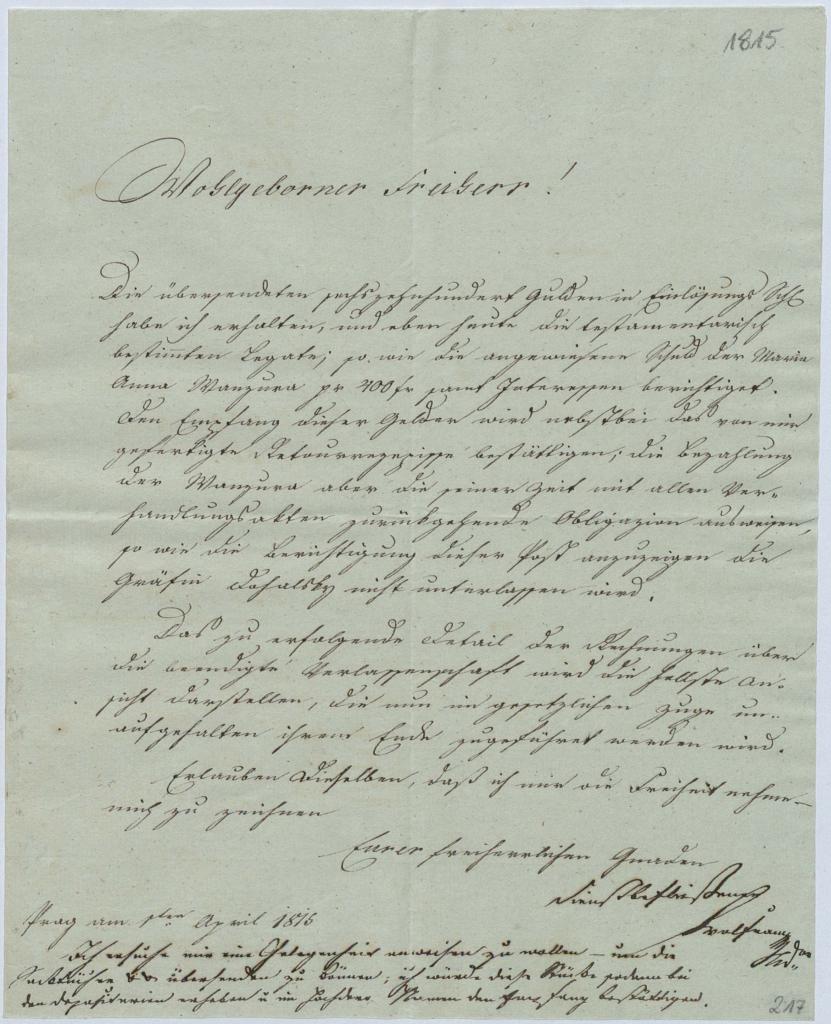 1815
Wohlgeborner Freiherr!
Die übersendeten sechszehnhundert Gulden in Einlösungs Sch
habe ich erhalten, und eben heute die testamentarisch
bestimmten Legate; so wie die angewiesene Schuld der Maria
Anna Wanzura pr 400 fr samt Interessen berichtiget.
Den Empfang dieser Gelder wird nebstbei das von mir
gefertigte Retourrezepisse bestättigen; die Bezahlung
der Wanzura aber die seiner Zeit mit allen Ver-
handlungsakten zurückgehende Obligazion ausweisen,
so wie die Berichtigung dieser Post anzuzeigen die
Gräfin Dohalsky nicht unterlassen wird.
Das zu erfolgende Detail der Rechnungen über
die beendigte Verlassenschaft wird die hellste An-
sicht darstellen, die nun im gesetzlichen Zuge un-
aufgehalten ihrem Ende zugeführet werden wird.
Erlauben Dieselben, daß ich mir die Freiheit nehme
mich zu zeichnen
Eurer freiherrlichen Gnaden
dienstbeflissener
Prag am 1ten April 1815
Ich ersuche mir eine Gelegenheit anweisen zu wollen – um die
übersenden zu können; ich würde diese Stücke sodann bei
den Depositarien erheben u im Namen den Empfang bestättigen.
217